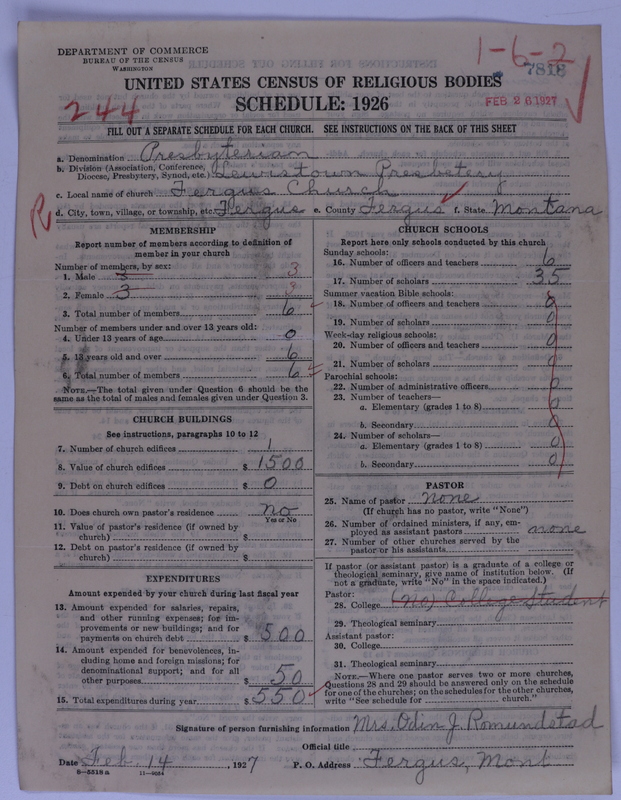 DEPARTMENT OF COMMERCE
BUREAU OF THE CENSUS
WASHINGTON
1-6-2
7818
UNITED STATES CENSUS OF RELIGIOUS BODIES
SCHEDULE: 1926
244
FEB 26 1927
FILL OUT A SEPARATE SCHEDULE FOR EACH CHURCH. SEE INSTRUCTIONS ON THE BACK OF THIS SHEET
a. Denomination Presbyterian
b. Division (Association, Conference, Diocese, Presbytery, Synod, etc.) Lewistown Presbetery
c. Local name of church Fergus Church
R
d. City, town, village, or township, etc. Fergus e. County Fergus f. State Montana
MEMBERSHIP
Report number of members according to definition of
member in your church
Number of members, by sex:
1. Male 3 3
2. Female 3 3
3. Total number of members 6
Number of members under and over 13 years old:
4. Under 13 years of age 0
5. 13 years old and over 6
6. Total number of members 6
NOTE.—The total given under Question 6 should be the
same as the total of males and females given under Question 3.
CHURCH BUILDINGS
See instructions, paragraphs 10 to 12
7. Number of church edifices 1
8. Value of church edifices $ 1500
9. Debt on church edifices $ 0
10. Does church own pastor's residence no
Yes or No
11. Value of pastor's residence (if owned by
church) $
12. Debt on pastor's residence (if owned by
church) $
EXPENDITURES
Amount expended by your church during last fiscal year
13. Amount expended for salaries, repairs,
and other running expenses; for im-
provements or new buildings; and for
payments on church debt $ 500
14. Amount expended for benevolences, in-
cluding home and foreign missions; for
denominational support; and for all
other purposes $ 50
15. Total expenditures during year $ 550
CHURCH SCHOOLS
Report here only schools conducted by this church
Sunday schools:
16. Number of officers and teachers 6
17. Number of scholars 35
Summer vacation Bible schools:
18. Number of officers and teachers 0
19. Number of scholars 0
Week-day religious schools:
20. Number of officers and teachers 0
21. Number of scholars 0
Parochial schools:
22. Number of administrative officers 0
23. Number of teachers—
a. Elementary (grades 1 to 8) 0
b. Secondary 0
24. Number of scholars—
a. Elementary (grades 1 to 8) 0
b. Secondary 0
PASTOR
25. Name of pastor none
(If church has no pastor, write "None")
26. Number of ordained ministers, if any, em-
ployed as assistant pastors none
27. Number of other churches served by the
pastor or his assistants
If pastor (or assistant pastor) is a graduate of a college or
theological seminary, give name of institution below. (If
not a graduate, write "No" in the space indicated.)
Pastor:
28. College (No) College Student
29. Theological seminary
Assistant pastor:
30. College
31. Theological seminary
NOTE.—Where one pastor serves two or more churches,
Questions 28 and 29 should be answered only on the schedule
for one of the churches; on the schedules for the other churches,
write "See schedule for church."
Signature of person furnishing information Mrs. Odin J. Romundstad
Official title
Date Feb. 14, 1927 P. O. Address Fergus, Mont
8—5518a 11—9084